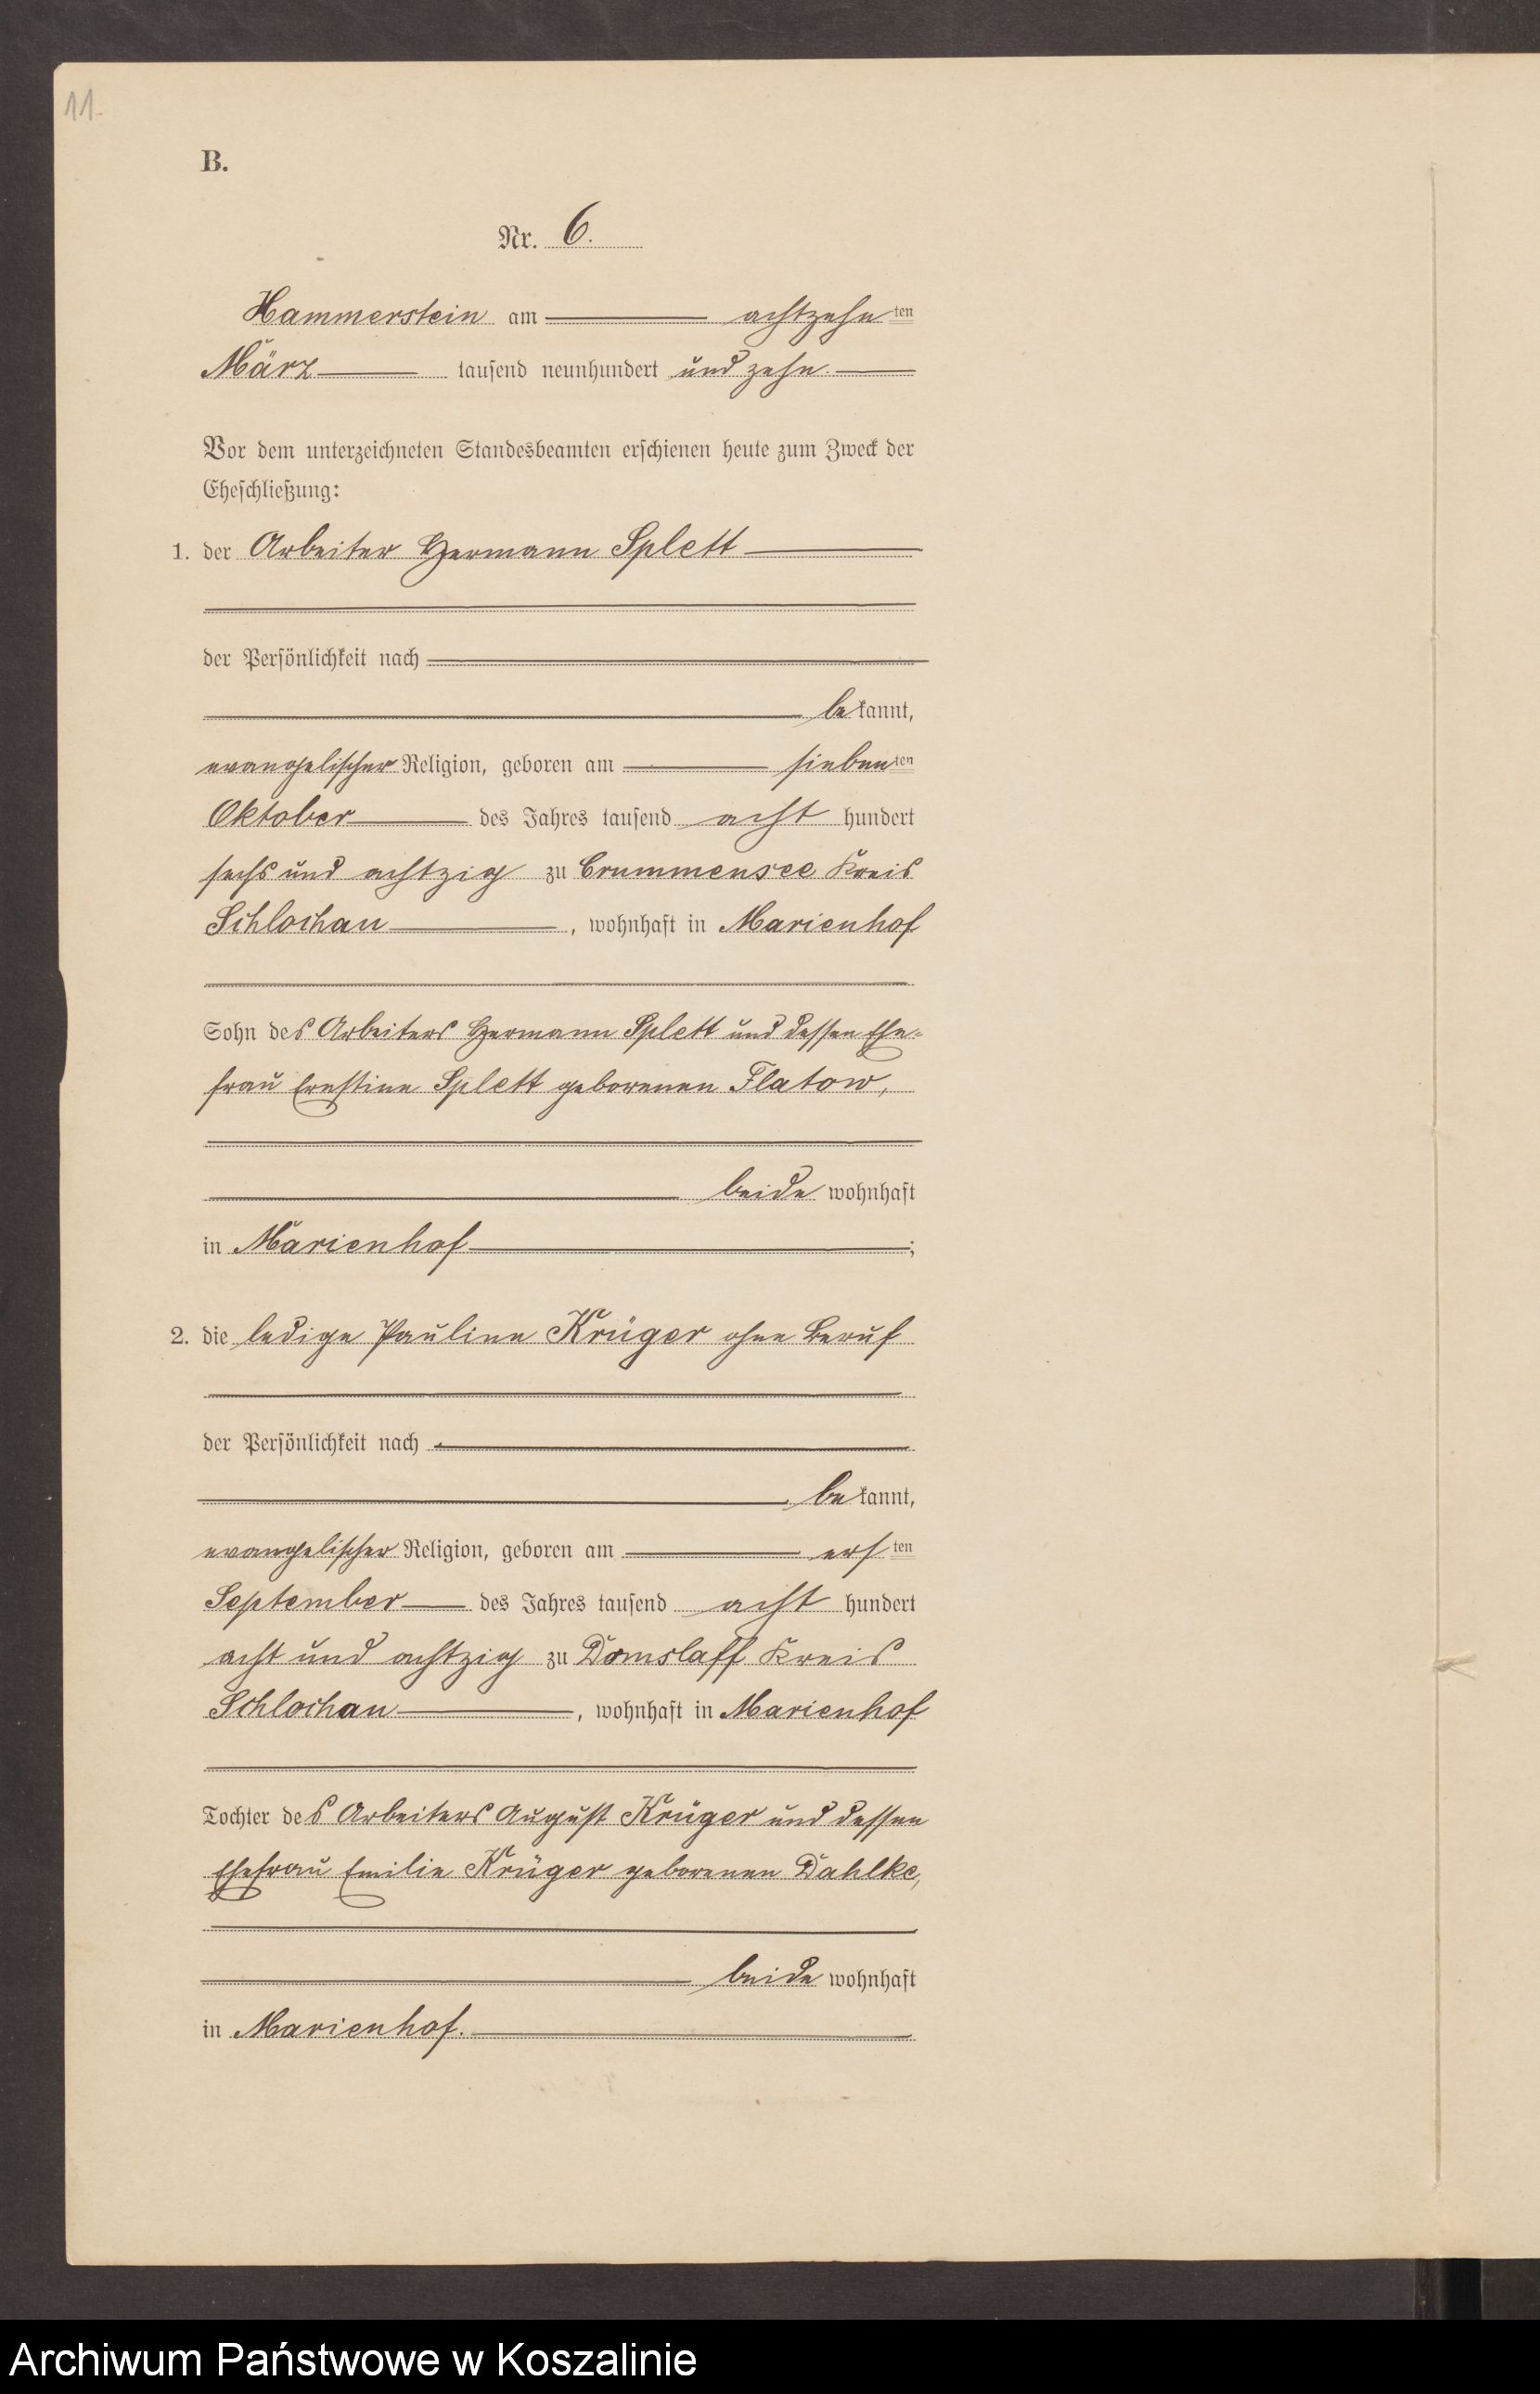 11.
B.
Nr. 6.
Hammerstein am achtzehnten
März tausend neunhundert und zehn.
Vor dem unterzeichneten Standesbeamten erschienen heute zum Zweck der
Eheschließung:
1. der Arbeiter Hermann Splett
der Persönlichkeit nach
bekannt,
evangelischer Religion, geboren am siebenten
Oktober des Jahres tausend acht hundert
sechs und achtzig zu Crummensee Kreis
Schlochau, wohnhaft in Marienhof
Sohn des Arbeiters Hermann Splett und dessen Ehe-
frau Ernstine Splett geborenen Flatow,
beide wohnhaft
in Marienhof;
2. die ledige Pauline Krüger ohne Beruf
der Persönlichkeit nach
bekannt,
evangelischer Religion, geboren am ersten
September des Jahres tausend acht hundert
acht und achtzig zu Domslaff Kreis
Schlochau, wohnhaft in Marienhof
Tochter des Arbeiters August Krüger und dessen
Ehefrau Emilie Krüger geborenen Dahlke,
beide wohnhaft
in Marienhof.
Archiwum Państwowe w Koszalinie